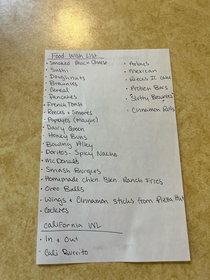 Food Wish List
- Smoked Gouda Cheese
- Sushi
- Doughnuts
- Brownies
- Cereal
- Pancakes
- French Toast
- Reeces + Smores
- Popeyes (Maybe)
- Dairy Green
- Honey Buns
- Bowling Alley
- Doritos - Spicy Nacho
- McDonalds
- Smash Burgers
- Homemade Chkn Bcn Ranch Fries
- Oreo Balls
- Wings + Cinnamon Sticks from Pizza Hut
- Cookies
- Arbys
- Mexican
- Reeces
- Protein Bars
- Cinnamon Rolls
California WL
- In + Out
- Cali Burrito